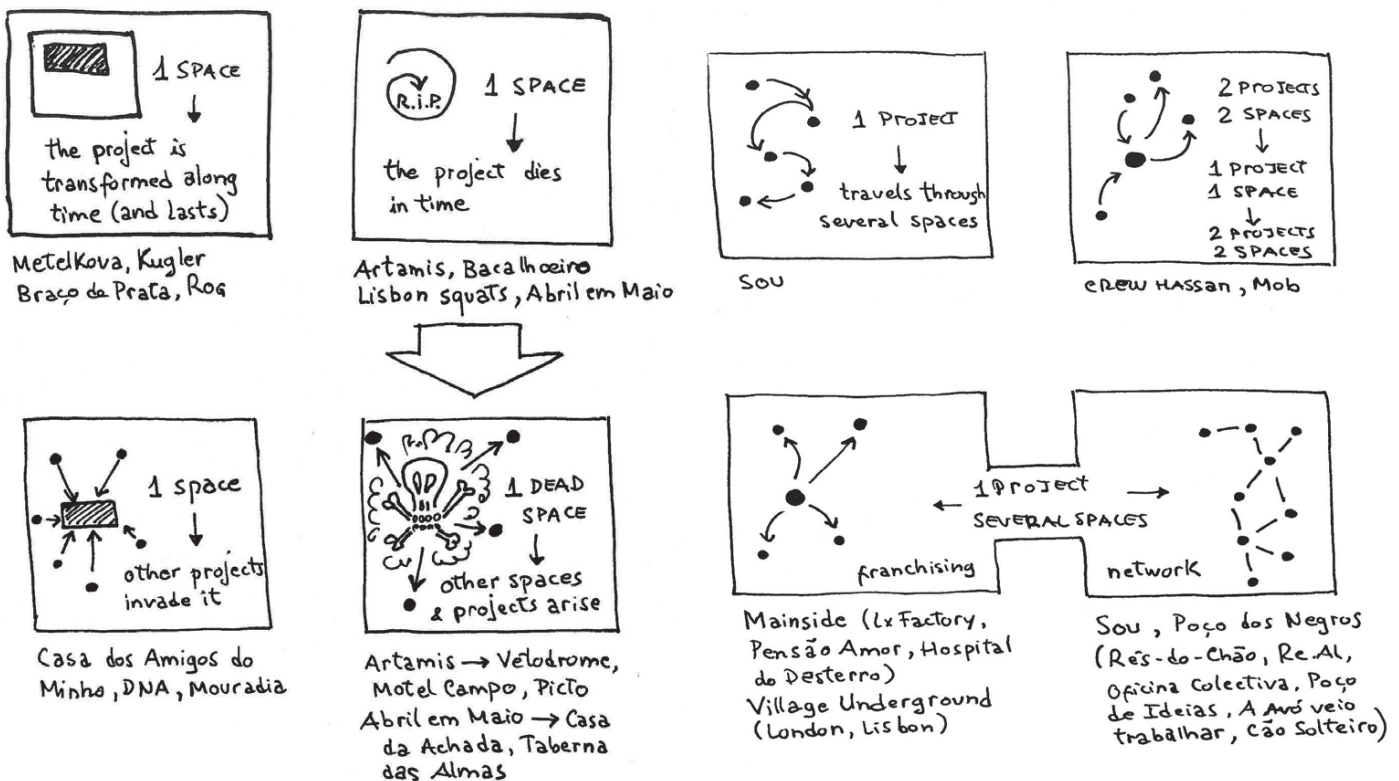 1 SPACE
the project is
transformed along
time (and lasts)
Metelkova, Kugler
Braço de Prata, Rog
R.i.P.
1 SPACE
the project dies
in time
Artamis, Bacalhoeiro
Lisbon squats, Abril em Maio
1 PROJECT
travels through
several spaces
SOU
2 PROJECTS
2 SPACES
1 PROJECT
1 SPACE
2 PROJECTS
2 SPACES
CREW HASSAN, Mob
1 space
other projects
invade it
Casa dos Amigos do
Minho, DNA, Mouradia
1 DEAD
SPACE
other spaces
& projects arise
Artamis → Vélodrome,
Motel Campo, Picto
Abril em Maio → Casa
da Achada, Taberna
das Almas
← 1 PROJECT →
SEVERAL SPACES
franchising
Mainside (Lx Factory,
Pensão Amor, Hospital
do Desterro)
Village Underground
(London, Lisbon)
network
Sou, Poço dos Negros
(Rés-do-Chão, Re.Al,
Oficina Colectiva, Poço
de Ideias, A Avó veio
trabalhar, Cão Solteiro)